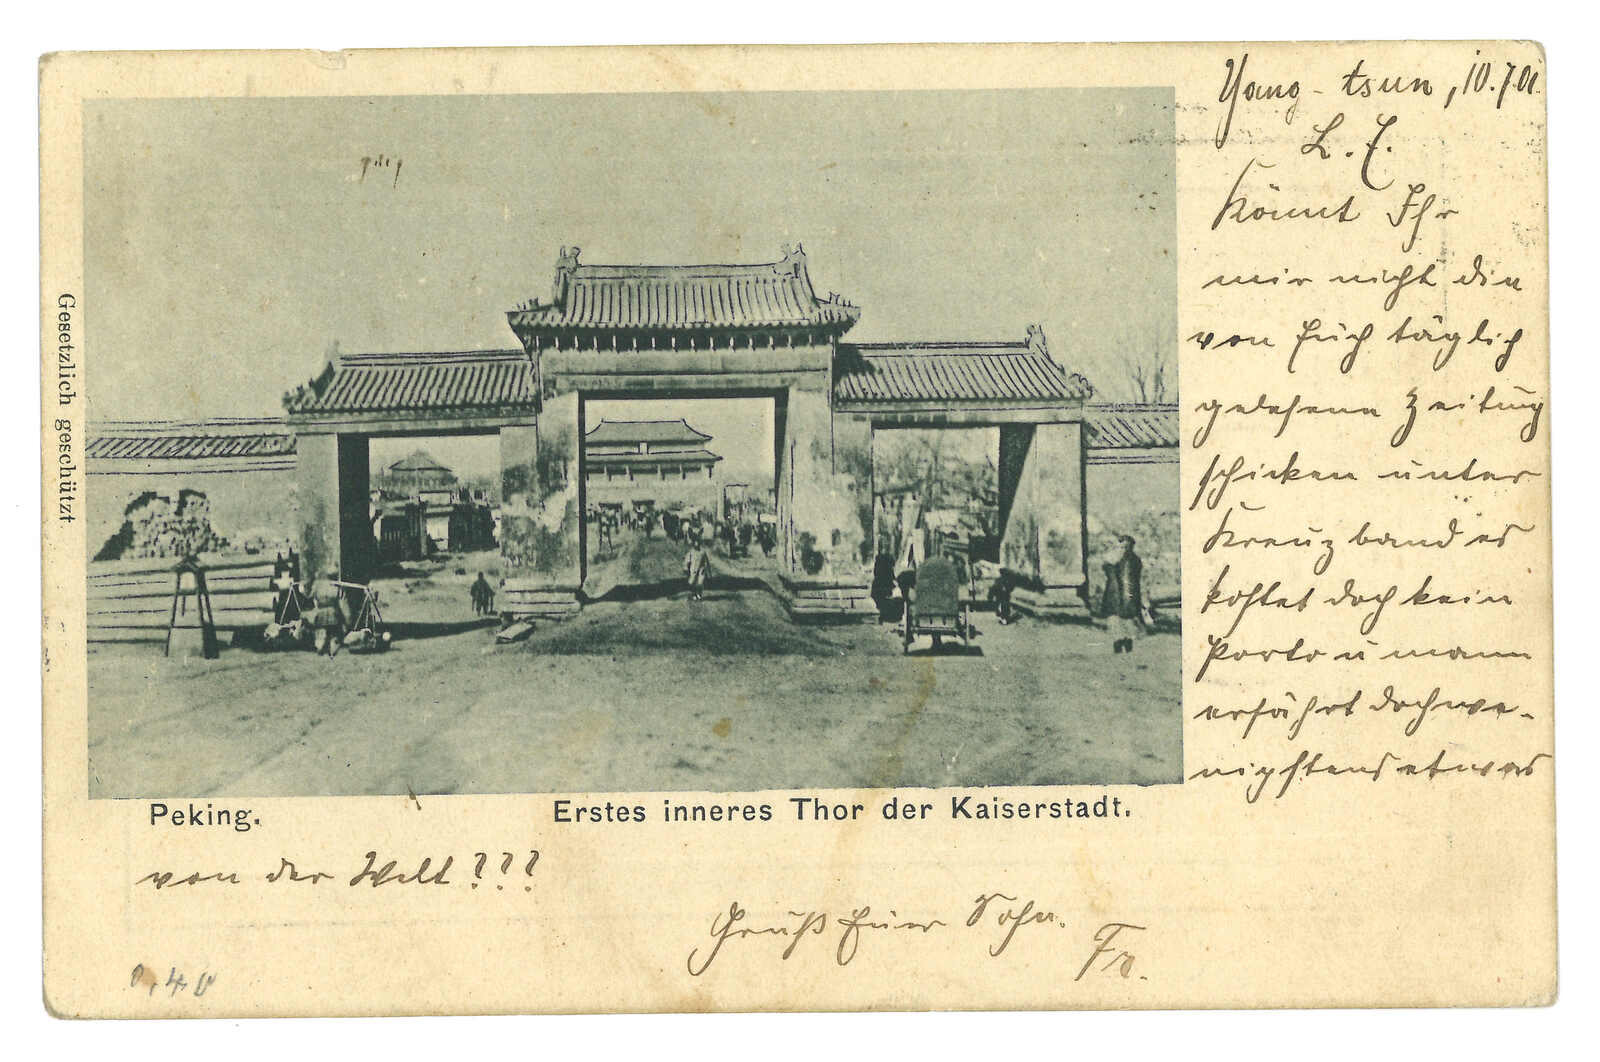 Yang-tsun, 10.7.01.
L. E.
Könnt Ihr
mir nicht die
von Euch täglich
gelesene Zeitung
schicken unter
Kreuzband es
kostet doch kein
Porto u mann
erfährt doch we-
nigstens etwas
Gesetzlich geschützt
Peking. Erstes inneres Thor der Kaiserstadt.
von der Welt???
Gruß Euer Sohn.
Fr.
0,40